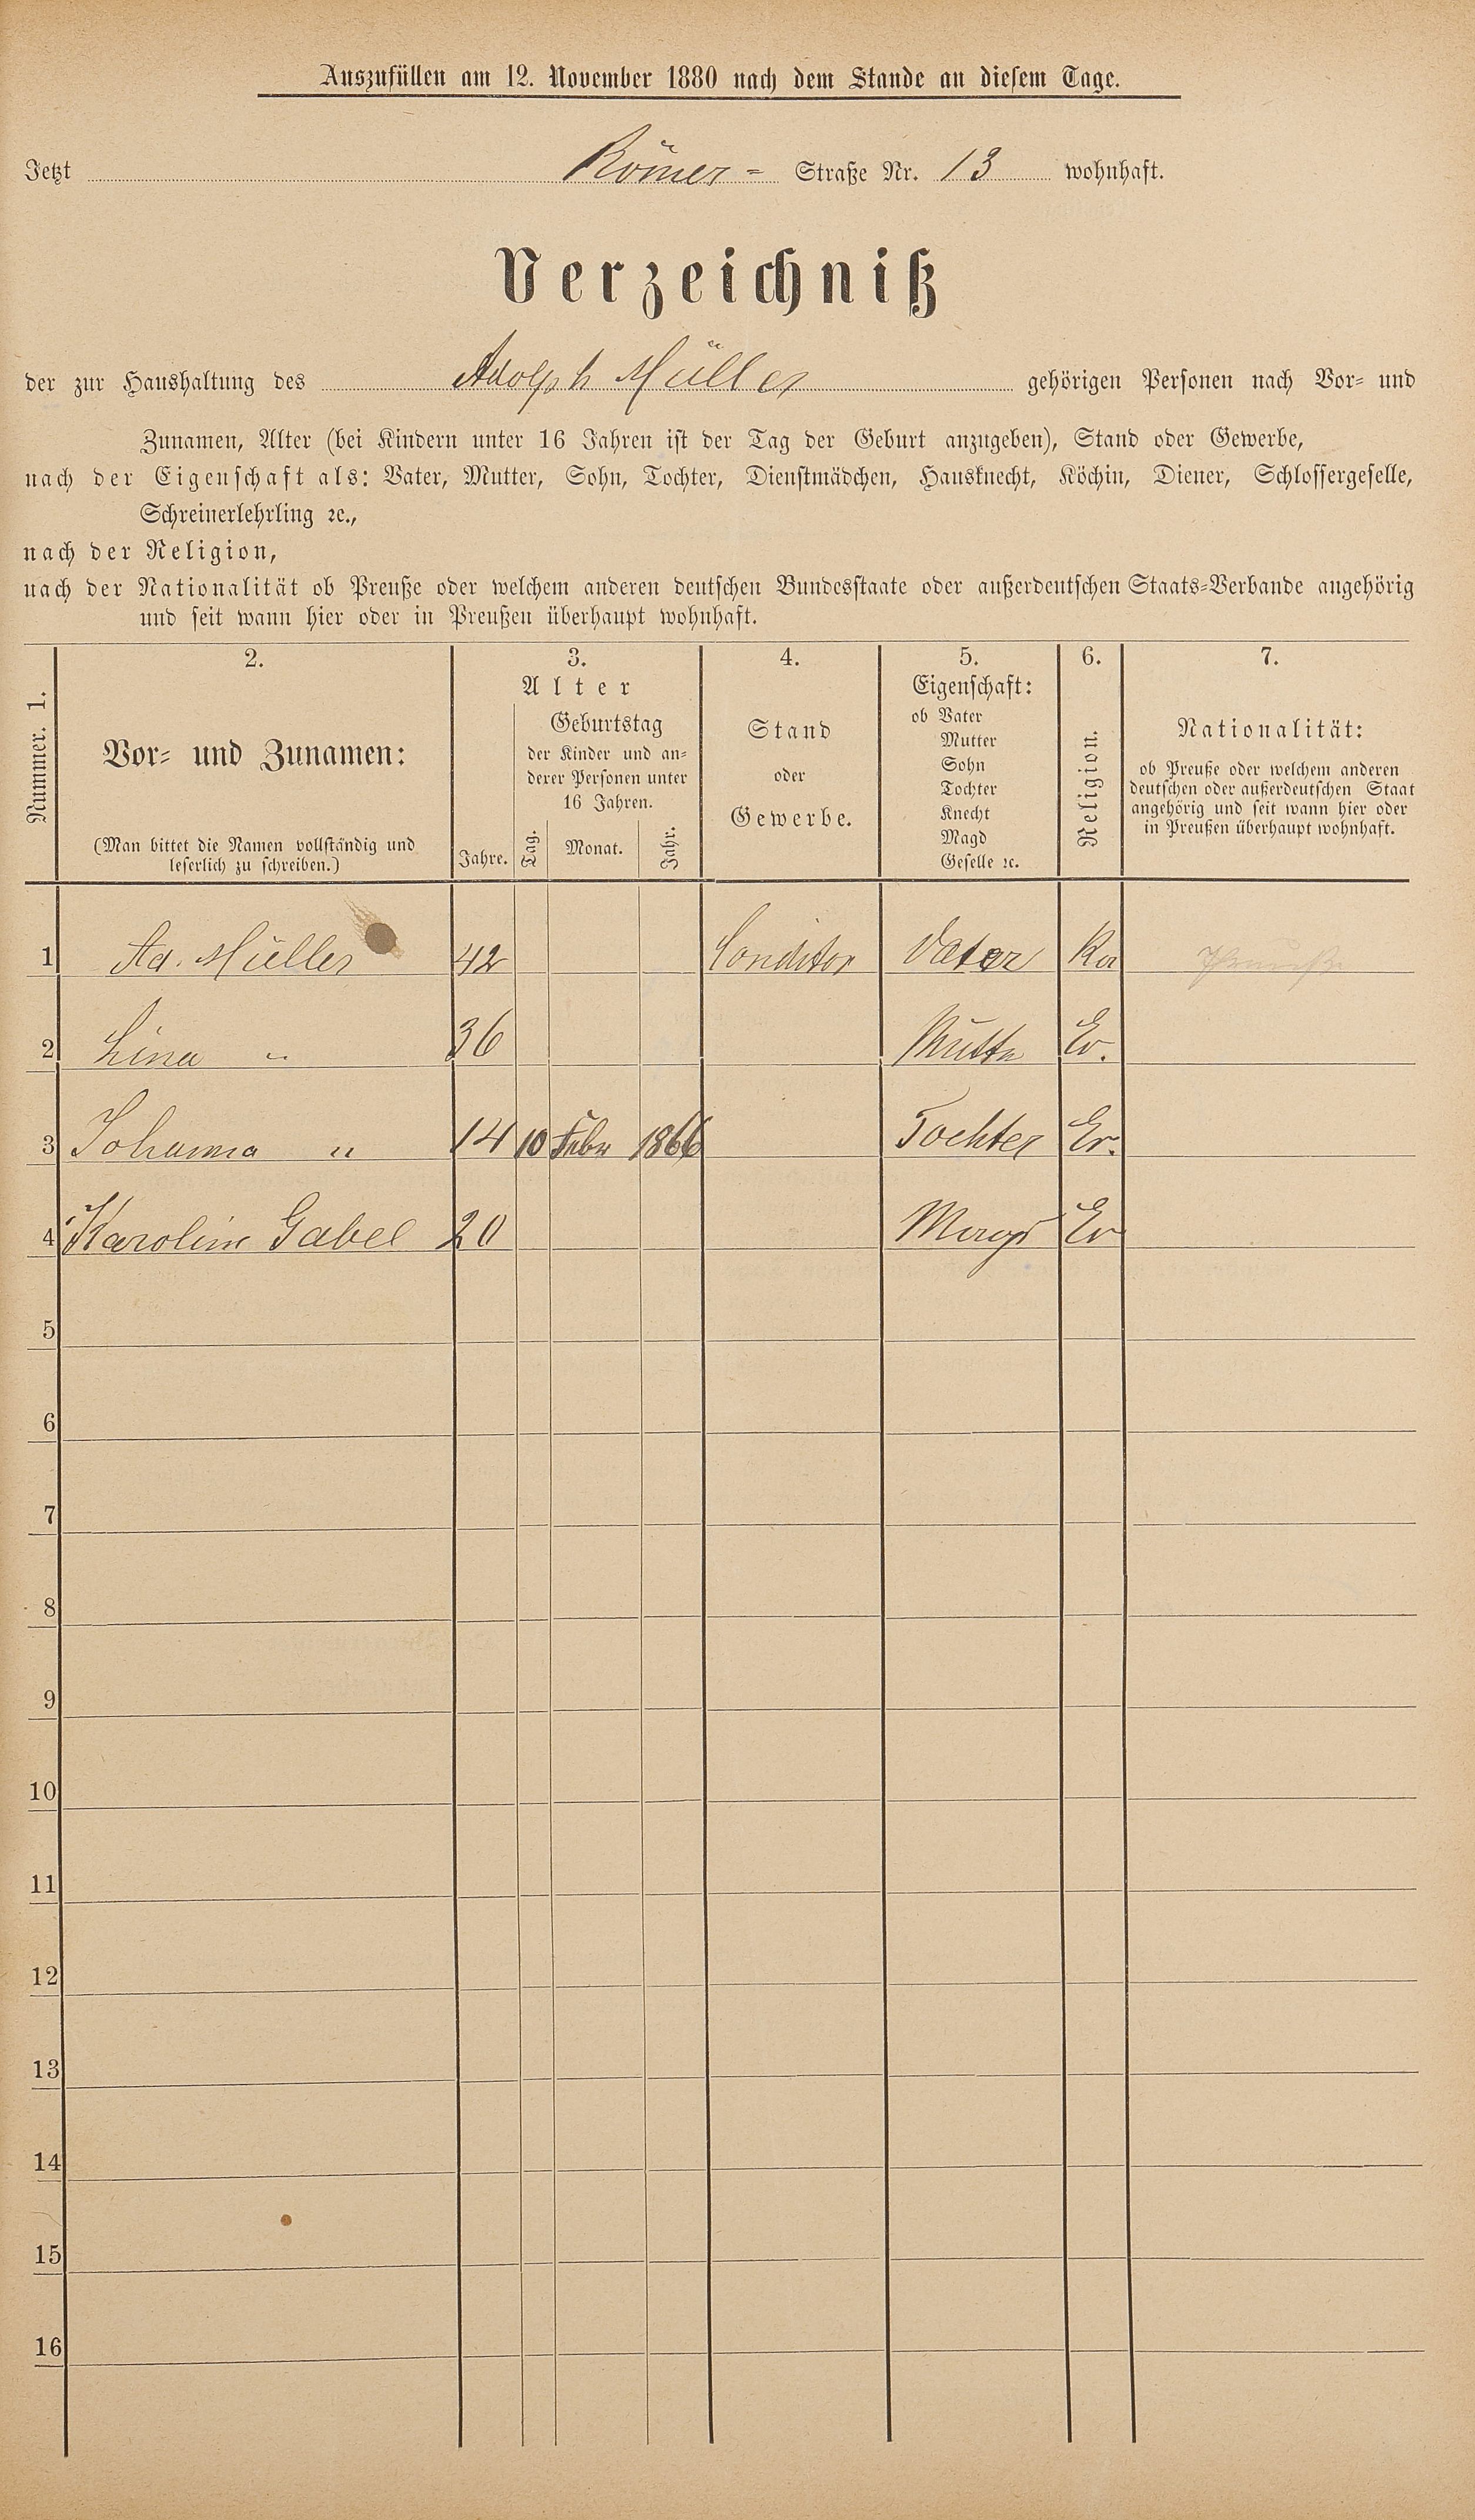 Auszufüllen am 12. November 1880 nach dem Stande an diesem Tage.
Jetzt Römer- Straße Nr. 13 wohnhaft.
Verzeichniß
der zur Haushaltung des Adolph Müller gehörigen Personen nach Vor- und
Zunamen, Alter (bei Kindern unter 16 Jahren ist der Tag der Geburt anzugeben), Stand oder Gewerbe,
nach der Eigenschaft als: Vater, Mutter, Sohn, Tochter, Dienstmädchen, Hausknecht, Köchin, Diener, Schlossergeselle,
Schreinerlehrling ꝛc.,
nach der Religion,
nach der Nationalität ob Preuße oder welchem anderen deutschen Bundesstaate oder außerdeutschen Staats-Verbande angehörig
und seit wann hier oder in Preußen überhaupt wohnhaft.
Nummer. 1.
2.
Vor- und Zunamen:
(Man bittet die Namen vollständig und
leserlich zu schreiben.)
3.
Alter
Jahre.
Geburtstag
der Kinder und an-
derer Personen unter
16 Jahren.
Tag.
Monat.
Jahr.
4.
Stand
oder
Gewerbe.
5.
Eigenschaft:
ob Vater
Mutter
Sohn
Tochter
Knecht
Magd
Geselle ꝛc.
6.
Religion.
7.
Nationalität:
ob Preuße oder welchem anderen
deutschen oder außerdeutschen Staat
angehörig und seit wann hier oder
in Preußen überhaupt wohnhaft.
1 Ad. Müller 42 Conditor Vater Preuße
2 Lina " 36 Mutter Ev.
3 Johanna " 14 10 Febr 1866 Tochter Ev.
4 Karoline Gabel 20 Magd Ev
5
6
7
8
9
10
11
12
13
14
15
16